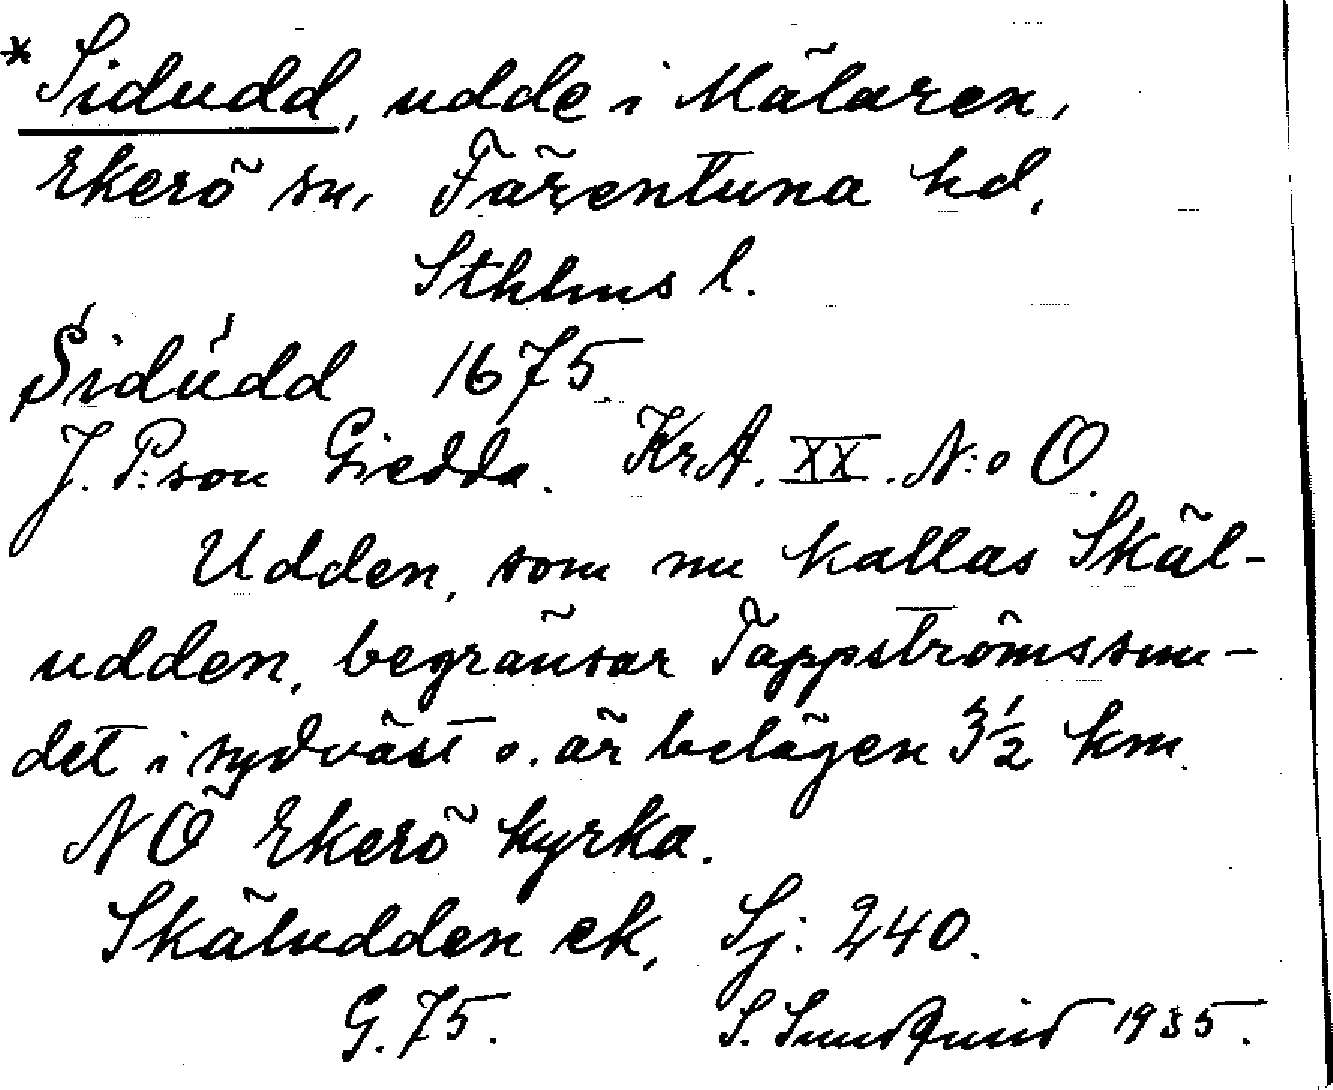 * Sidudd, udde i Mälaren,
Ekerö sn, Färentuna hd,
Sthlms l.
Sidúdd 1675.
J. P:son Giedda. KrA. XX. N:o O.
Udden, som nu kallas Skäl-
udden, begränsar Tappströmssun-
det i sydväst o. är belägen 3½ km
NÖ Ekerö kyrka.
Skäludden ek, Sj: 240.
G. 75. S. Sundqvist 1935.